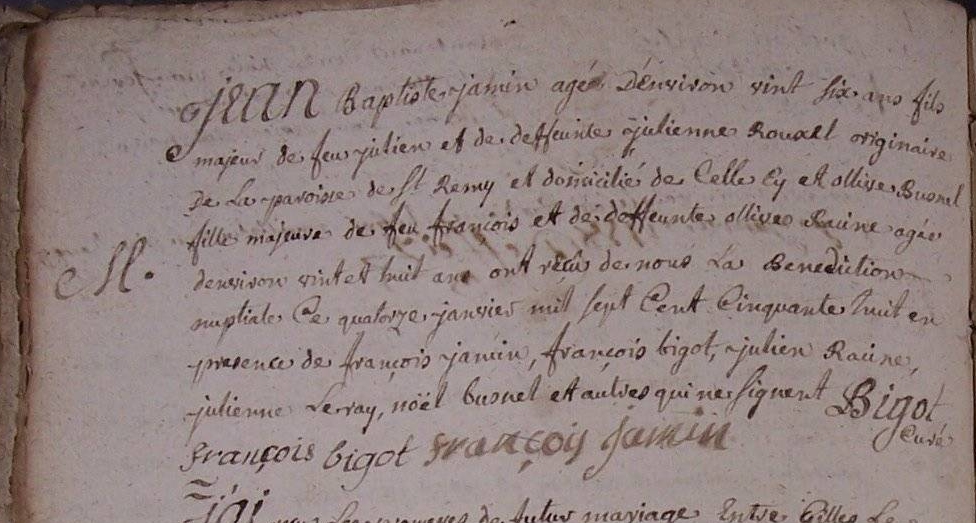 Jean Baptiste jamin agé Denviron vint six ans fils
majeur de feu julien et de deffeunte julienne Rouxel originaire
De La paroisse de St Remy et domicilié de Celle Cy et ollive Busnel
fille majeure de feu françois et de deffeunte ollive Racine agée
M. denviron vint et huit ans ont reçu de nous La Benediction
nuptiale Ce quatorze janvier mil sept Cent Cinquante huit en
presence de françois jamin, françois bigot, julien Racine,
julienne Leray, noël busnel et autres qui ne signent Bigot
Curé
françois bigot françois jamin
mariage Entre Gilles